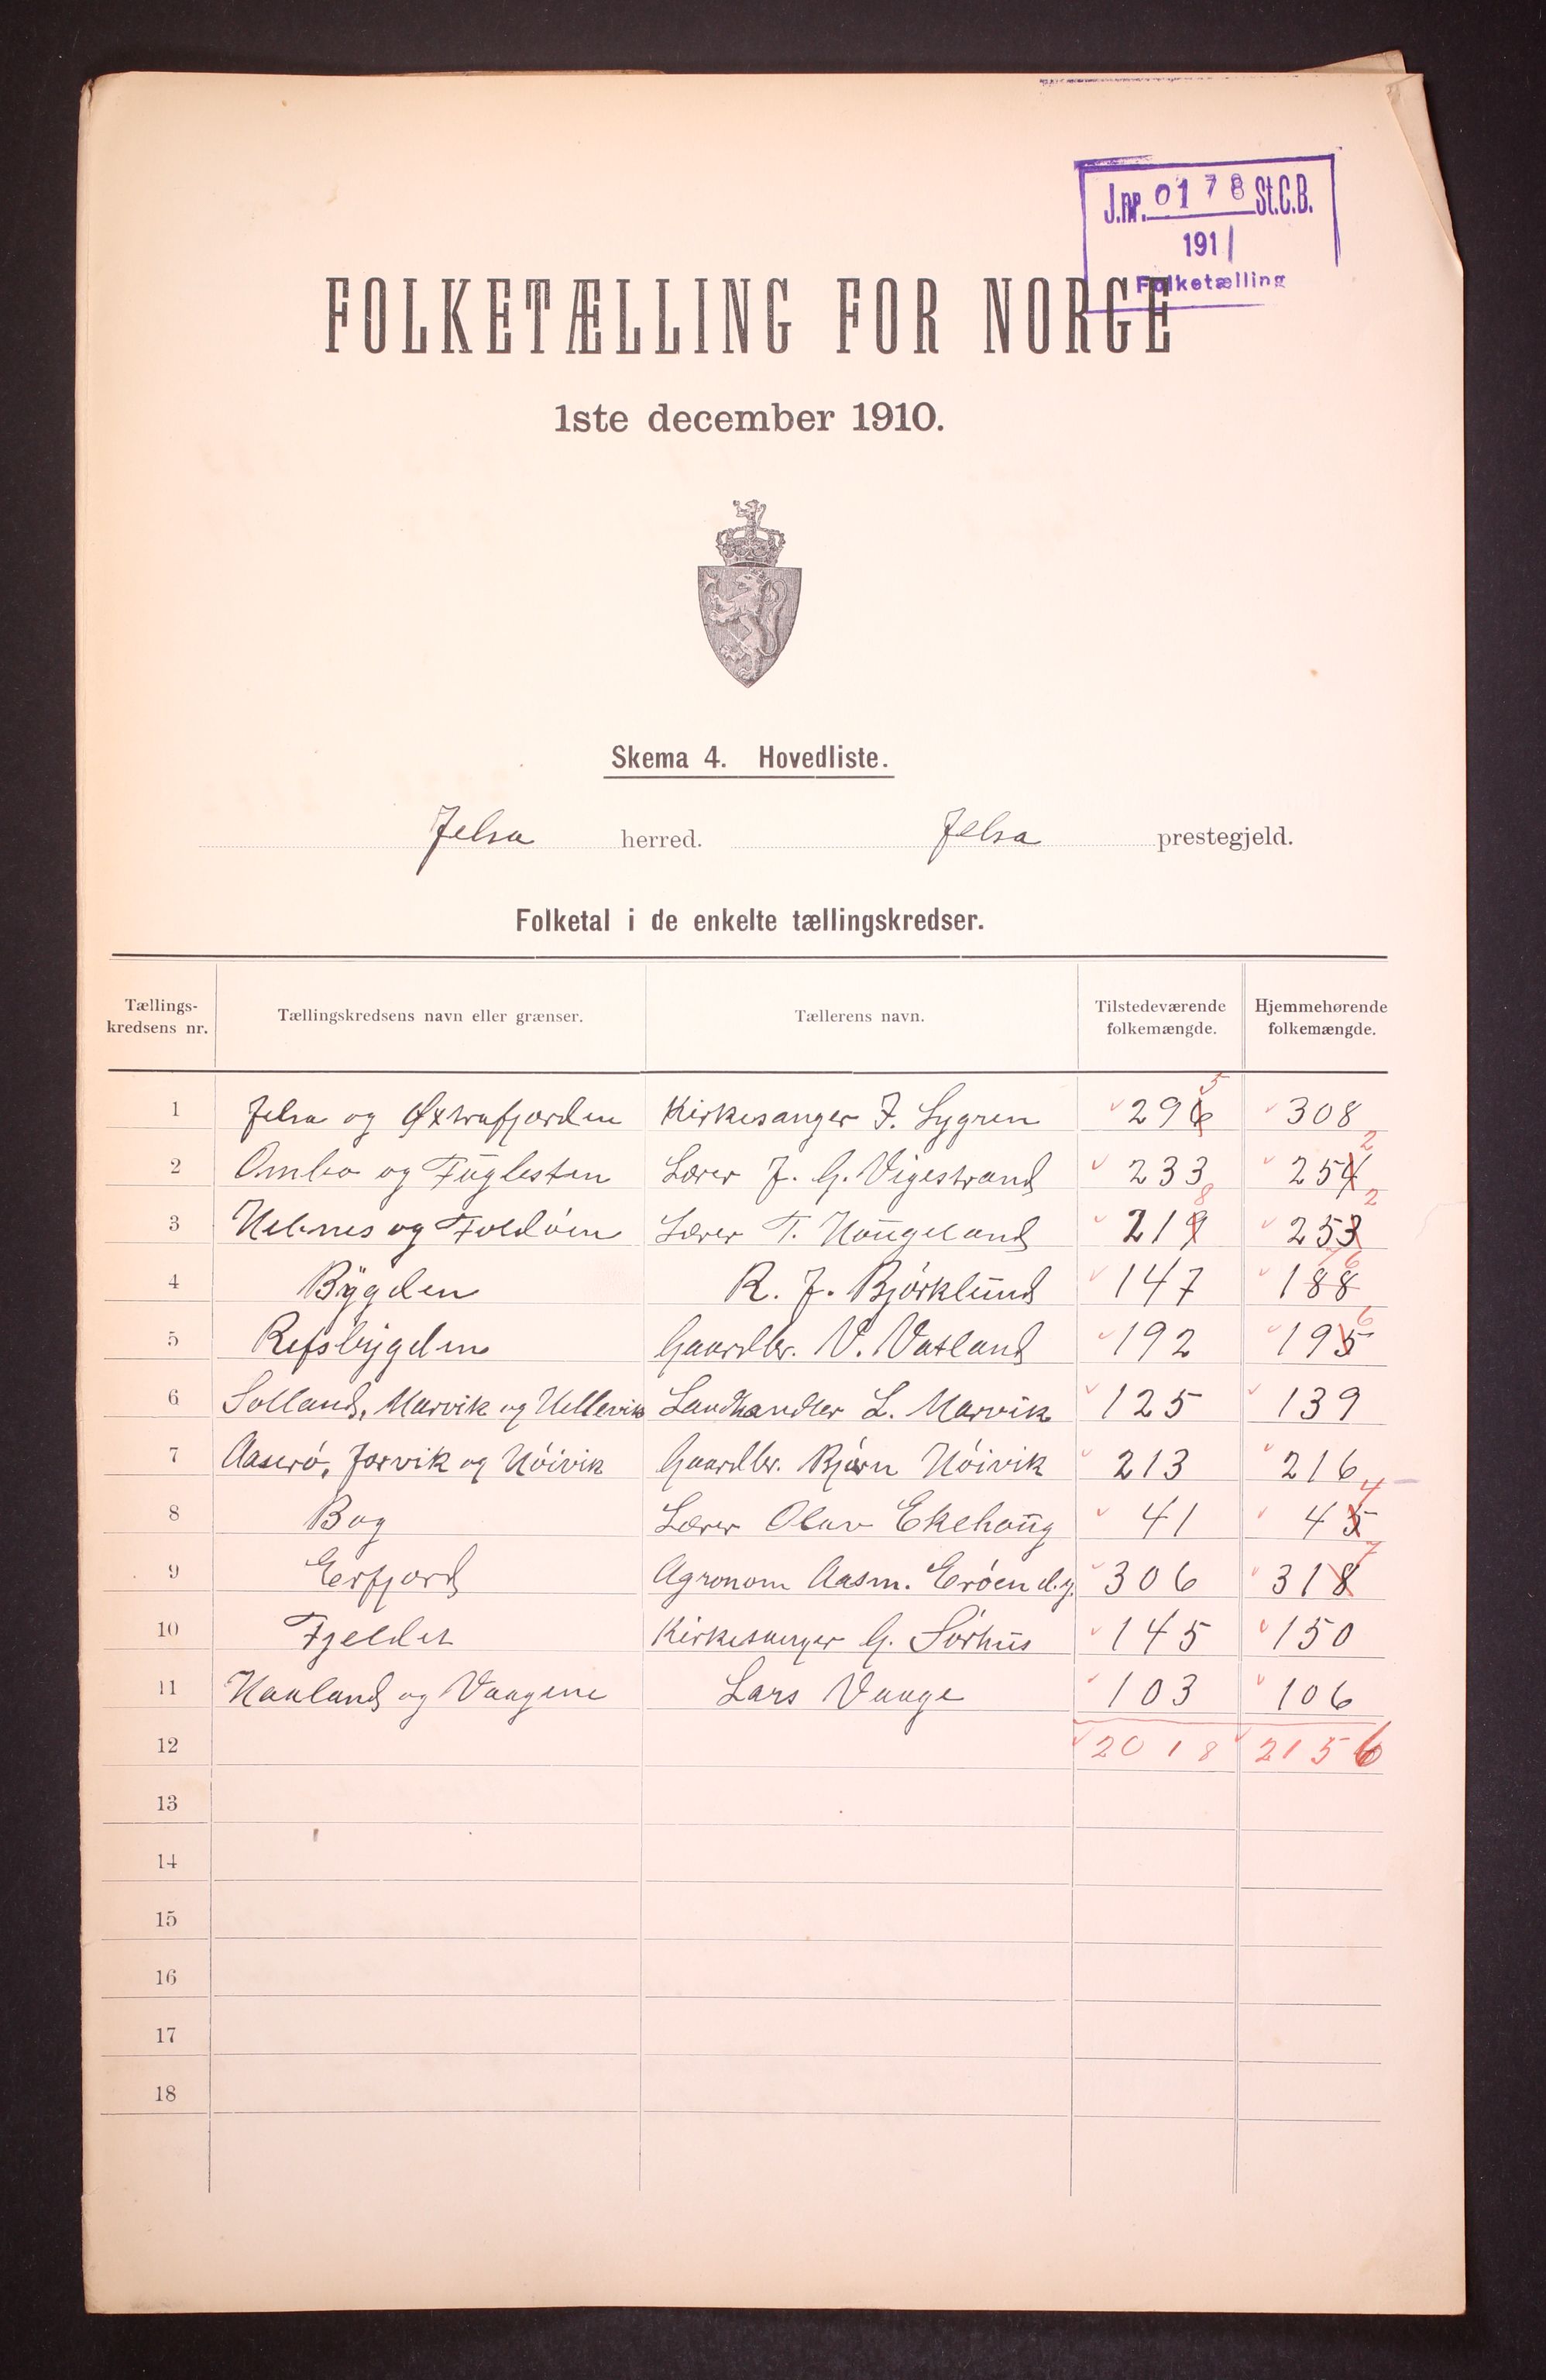 J.nr. 0178 St.C.B.
1911
Folketælling
FOLKETÆLLING FOR NORGE
1ste december 1910.
Skema 4. Hovedliste.
Jelsa herred. Jelsa prestegjeld.
Folketal i de enkelte tællingskredser.
Tællings-kredsens nr. Tællingskredsens navn eller grænser. Tællerens navn. Tilstedeværende folkemængde. Hjemmehørende folkemængde.
1 Jelsa og Øxtrafjorden Kirkesanger J. Lygren 296 5 308
2 Ombo og Fuglesten Lærer J. G. Vigestrand 233 254 2
3 Hebnes og Foldöen Lærer T. Hougeland 219 8 253 2
4 Bygden R. J. Björklund 147 188 6
5 Refsbygden Gaardbr. V. Vatland 192 195 6
6 Solland, Marvik og Hellevik Landhandler L. Marvik 125 139
7 Aaserö, Jorvik og Höivik Gaardbr. Bjørn Höivik 213 216
8 Bog Lærer Olav Ekehoug 41 45 4
9 Erfjord Agronom Aasm. Eröen d.y. 306 318 7
10 Fjeldet Kirkesanger G. Sörhus 145 150
11 Haaland og Vaagene Lars Vaage 103 106
12 2018 2156
13
14
15
16
17
18